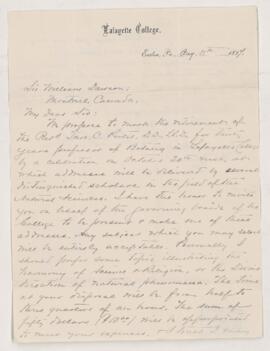 Lafayette College.
Easton, Pa. Aug. 11th 1897
Sir William Dawson;
Montreal, Canada,
My Dear Sir:
We propose to mark the retirement of
the Rev. C. D.D. for
years professor of Botany in Lafayette College
by a celebration on October 20th next, at
which addresses will be delivered by several
distinguished scholars in the field of the
Natural Sciences. I have the honor to invite
you on behalf of the governing boards of the
College to be present & make one of these
addresses. Any subject which you may select
will be entirely acceptable. Personally I
should prefer some topic illustrating the
harmony of Science & Religion, or the Divine
direction of natural phenomena. The time
at your disposal will be from half to
three quarters of an hour. The sum of
fifty dollars will be appropriated
to meet your expenses.